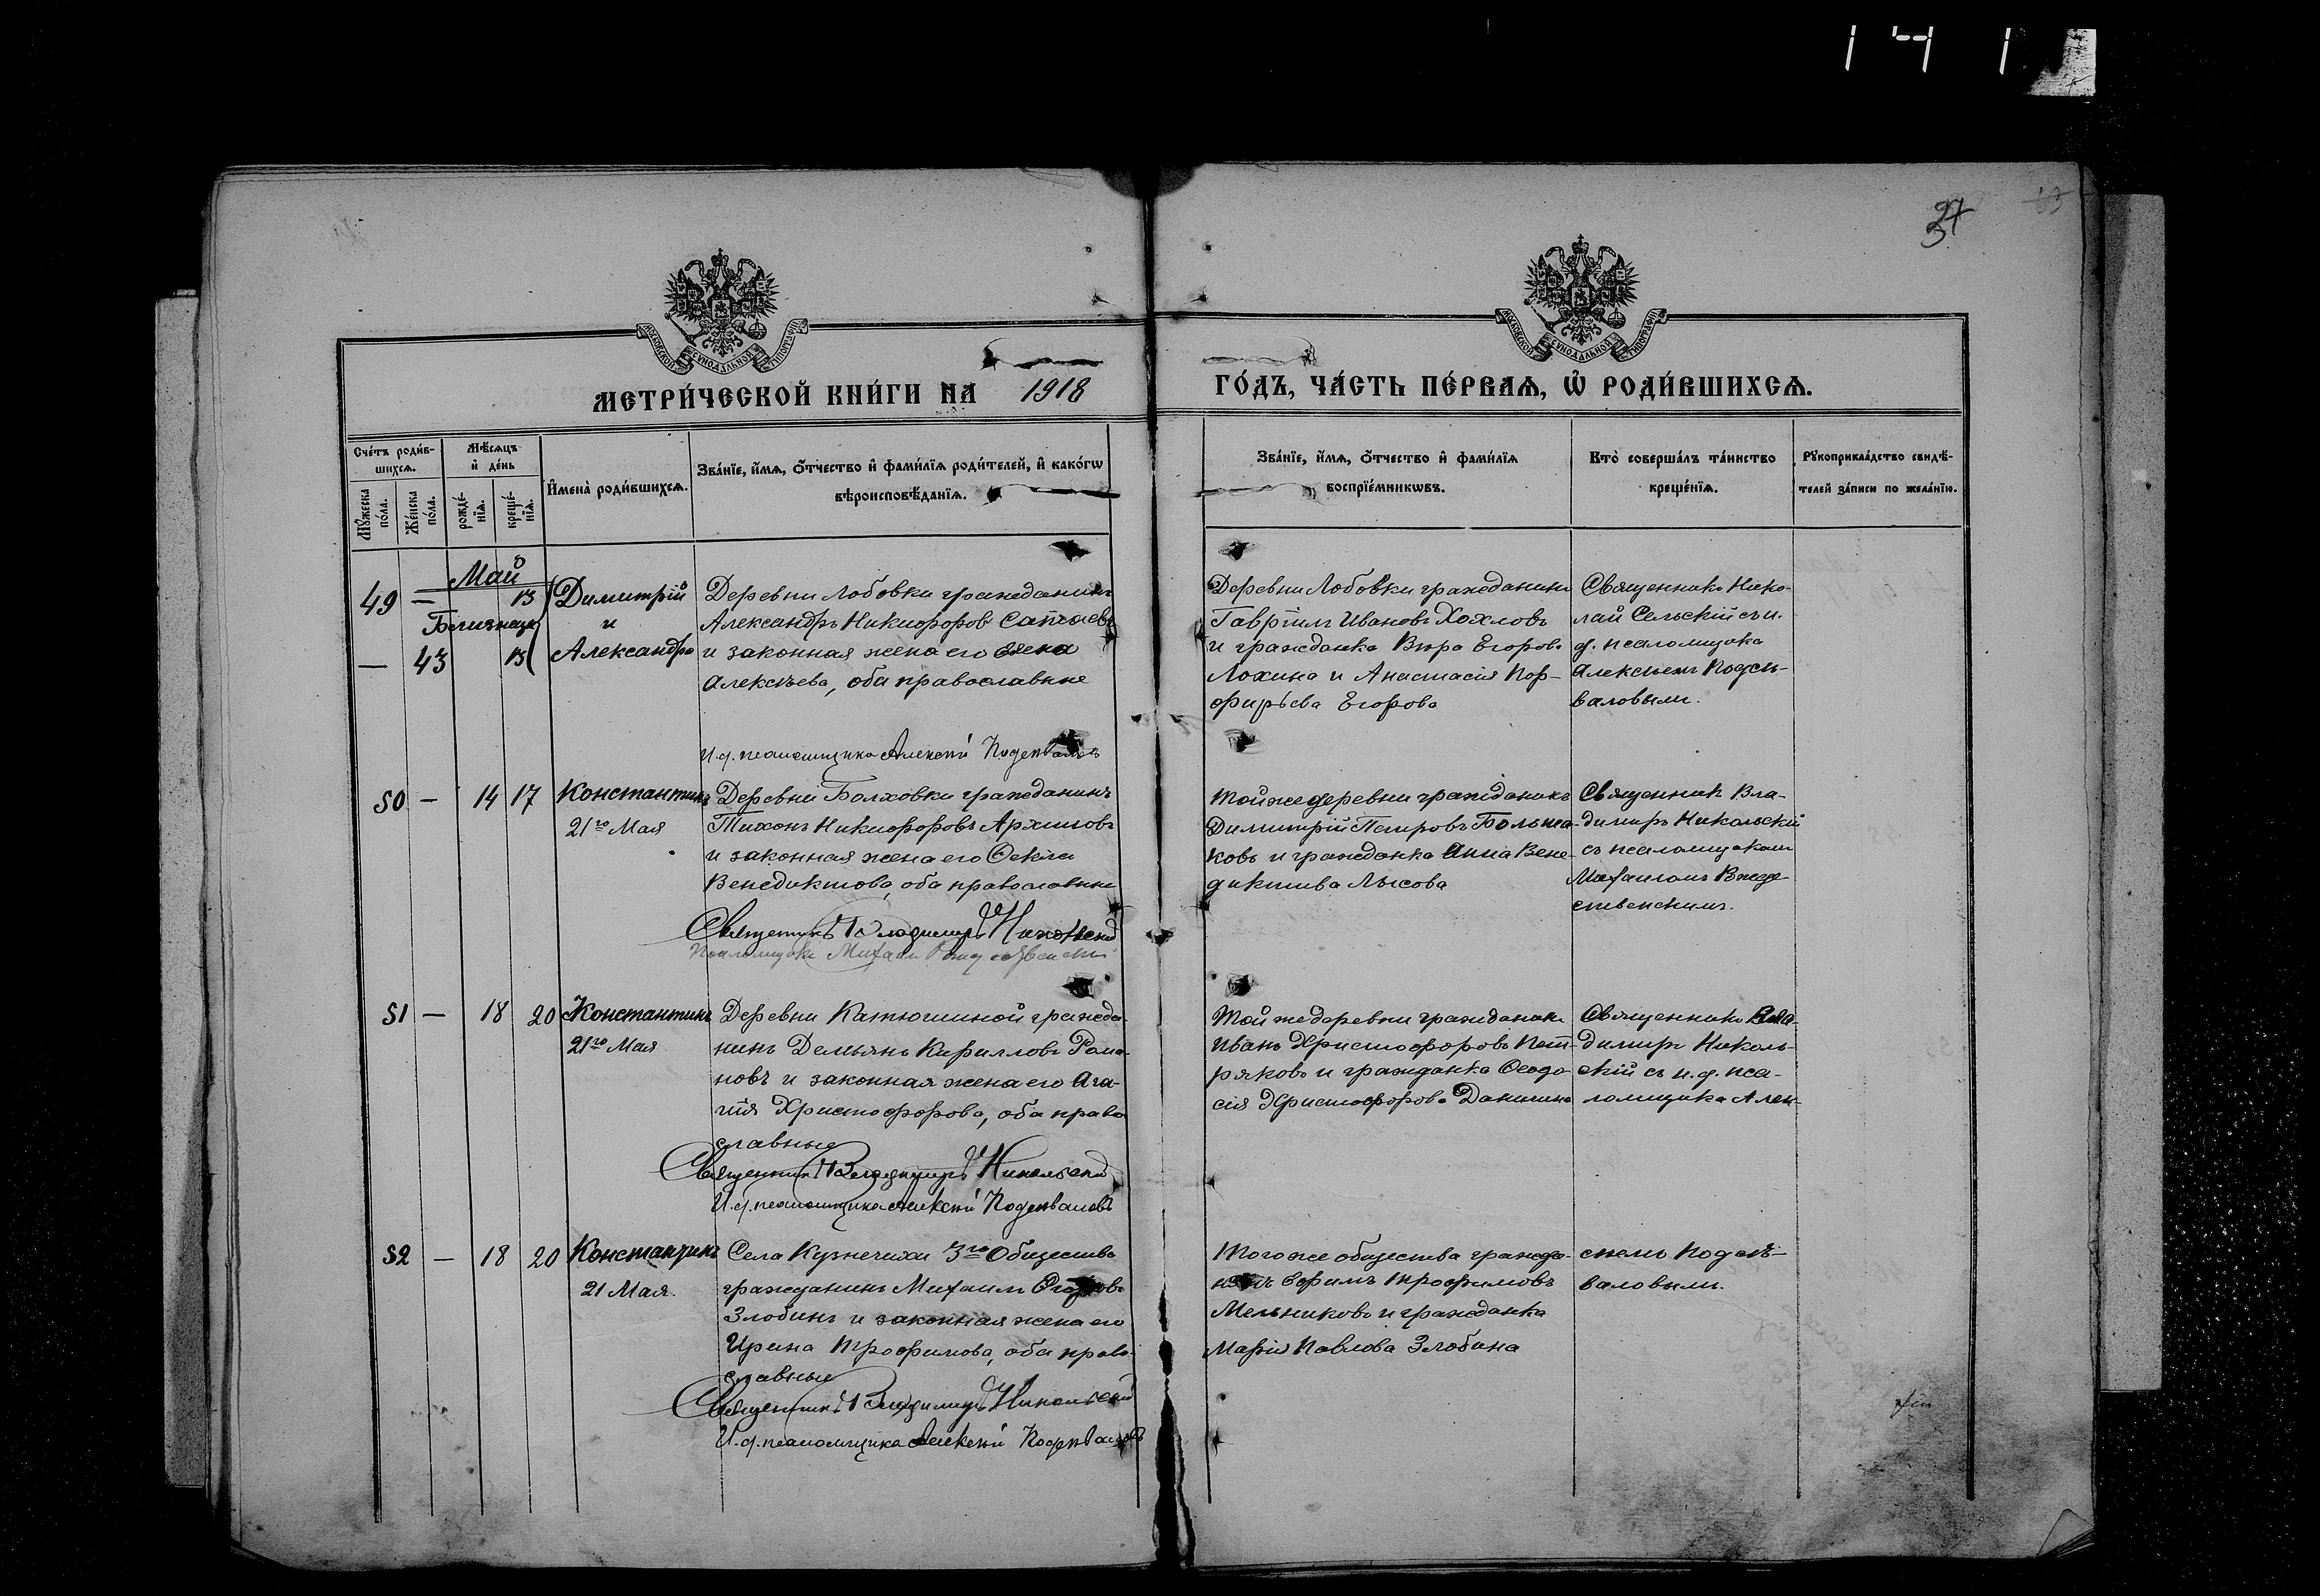 37
МОСКОВСКОЙ СѴНОДАЛЬНОЙ ТИПОГРАФІИ
МОСКОВСКОЙ СѴНОДАЛЬНОЙ ТИПОГРАФІИ
МЕТРИ́ЧЕСКОЙ КНИ́ГИ НА 1918
ГО́ДЪ, ЧА́СТЬ ПЕ́РВАѦ, Ѡ҆ РОДИ́ВШИХСѦ.
Сче́тъ роди́в-
шихсѧ.
Мꙋ́жеска по́ла.
Же́нска по́ла.
Мѣ́сѧцъ
и҆ де́нь
рожде́-
нїѧ.
креще́-
нїѧ.
И҆мена̀ роди́вшихсѧ.
Зва́нїе, и҆́мѧ, ѻ҆́тчество и҆ фами́лїѧ роди́телей, и҆ како́гѡ
вѣроисповѣ́данїѧ.
Зва́нїе, и҆́мѧ, ѻ҆́тчество и҆ фами́лїѧ
воспрїе́мникѡвъ.
Кто̀ соверша́лъ та́инство
креще́нїѧ.
Рꙋкоприкла́дство свидѣ́-
телей за́писи по жела́нїю.
Май
49 — 13 Димитрій
Близнецы и
— 43 13 Александра
Деревни Лобовки гражданинъ
Александръ Никифоровъ
и законная жена его
Алексѣева, оба православные
И.д. псаломщика Алексѣй Подсѣваловъ
Деревни Лобовки гражданинъ
Гавріилъ Ивановъ Хохловъ
и гражданка Вѣра Егорова
Лохина и Анастасія Пор-
фирьева Егорова
Священникъ Нико-
лай Сельскій съ и.
д. псаломщика
Алексѣемъ Подсѣ-
валовымъ.
50 — 14 17 Константинъ
21го Мая
Деревни Болховки гражданинъ
Тихонъ Никифоровъ Архиповъ
и законная жена его Ѳекла
Венедиктова, оба православные
Священникъ Владимиръ Никольскій
Псаломщикъ Михаилъ Рождественскій
Той же деревни гражданинъ
Димитрій Петровъ Больша-
ковъ и гражданка Анна Вене-
диктива Лысова
Священникъ Вла-
димиръ Никольскій
съ псаломщикомъ
Михаиломъ Рожде-
ственскимъ.
51 — 18 20 Константинъ
21го Мая
Деревни Катюшиной гражда-
нинъ Демьянъ Кирилловъ Рома-
новъ и законная жена его Ага-
пія Христофорова, оба право
славные
Священникъ Владимиръ Никольскій
И.д. псаломщика Алексѣй Подсѣваловъ
Той же деревни гражданинъ
Иванъ Христофоровъ Пет-
ряковъ и гражданка Ѳеодо-
сія Христофорова Данилина
Священникъ Вла-
димиръ Николь-
скій съ и. д. пса-
ломщика Алек-
52 — 18 20 Константинъ
21 Мая.
Села Кузнечихи 3го Общества
гражданинъ Михаилъ
Злобинъ и законная жена его
Ирина Трофимова, оба право-
славные
Священникъ Владимиръ Никольскій
И.д. псаломщика Алексѣй Подсѣваловъ
Того же общества гражда-
нинъ Ефимъ Трофимовъ
Мельниковъ и гражданка
Марія Павлова Злобина
сѣемъ Подсѣ-
валовымъ.